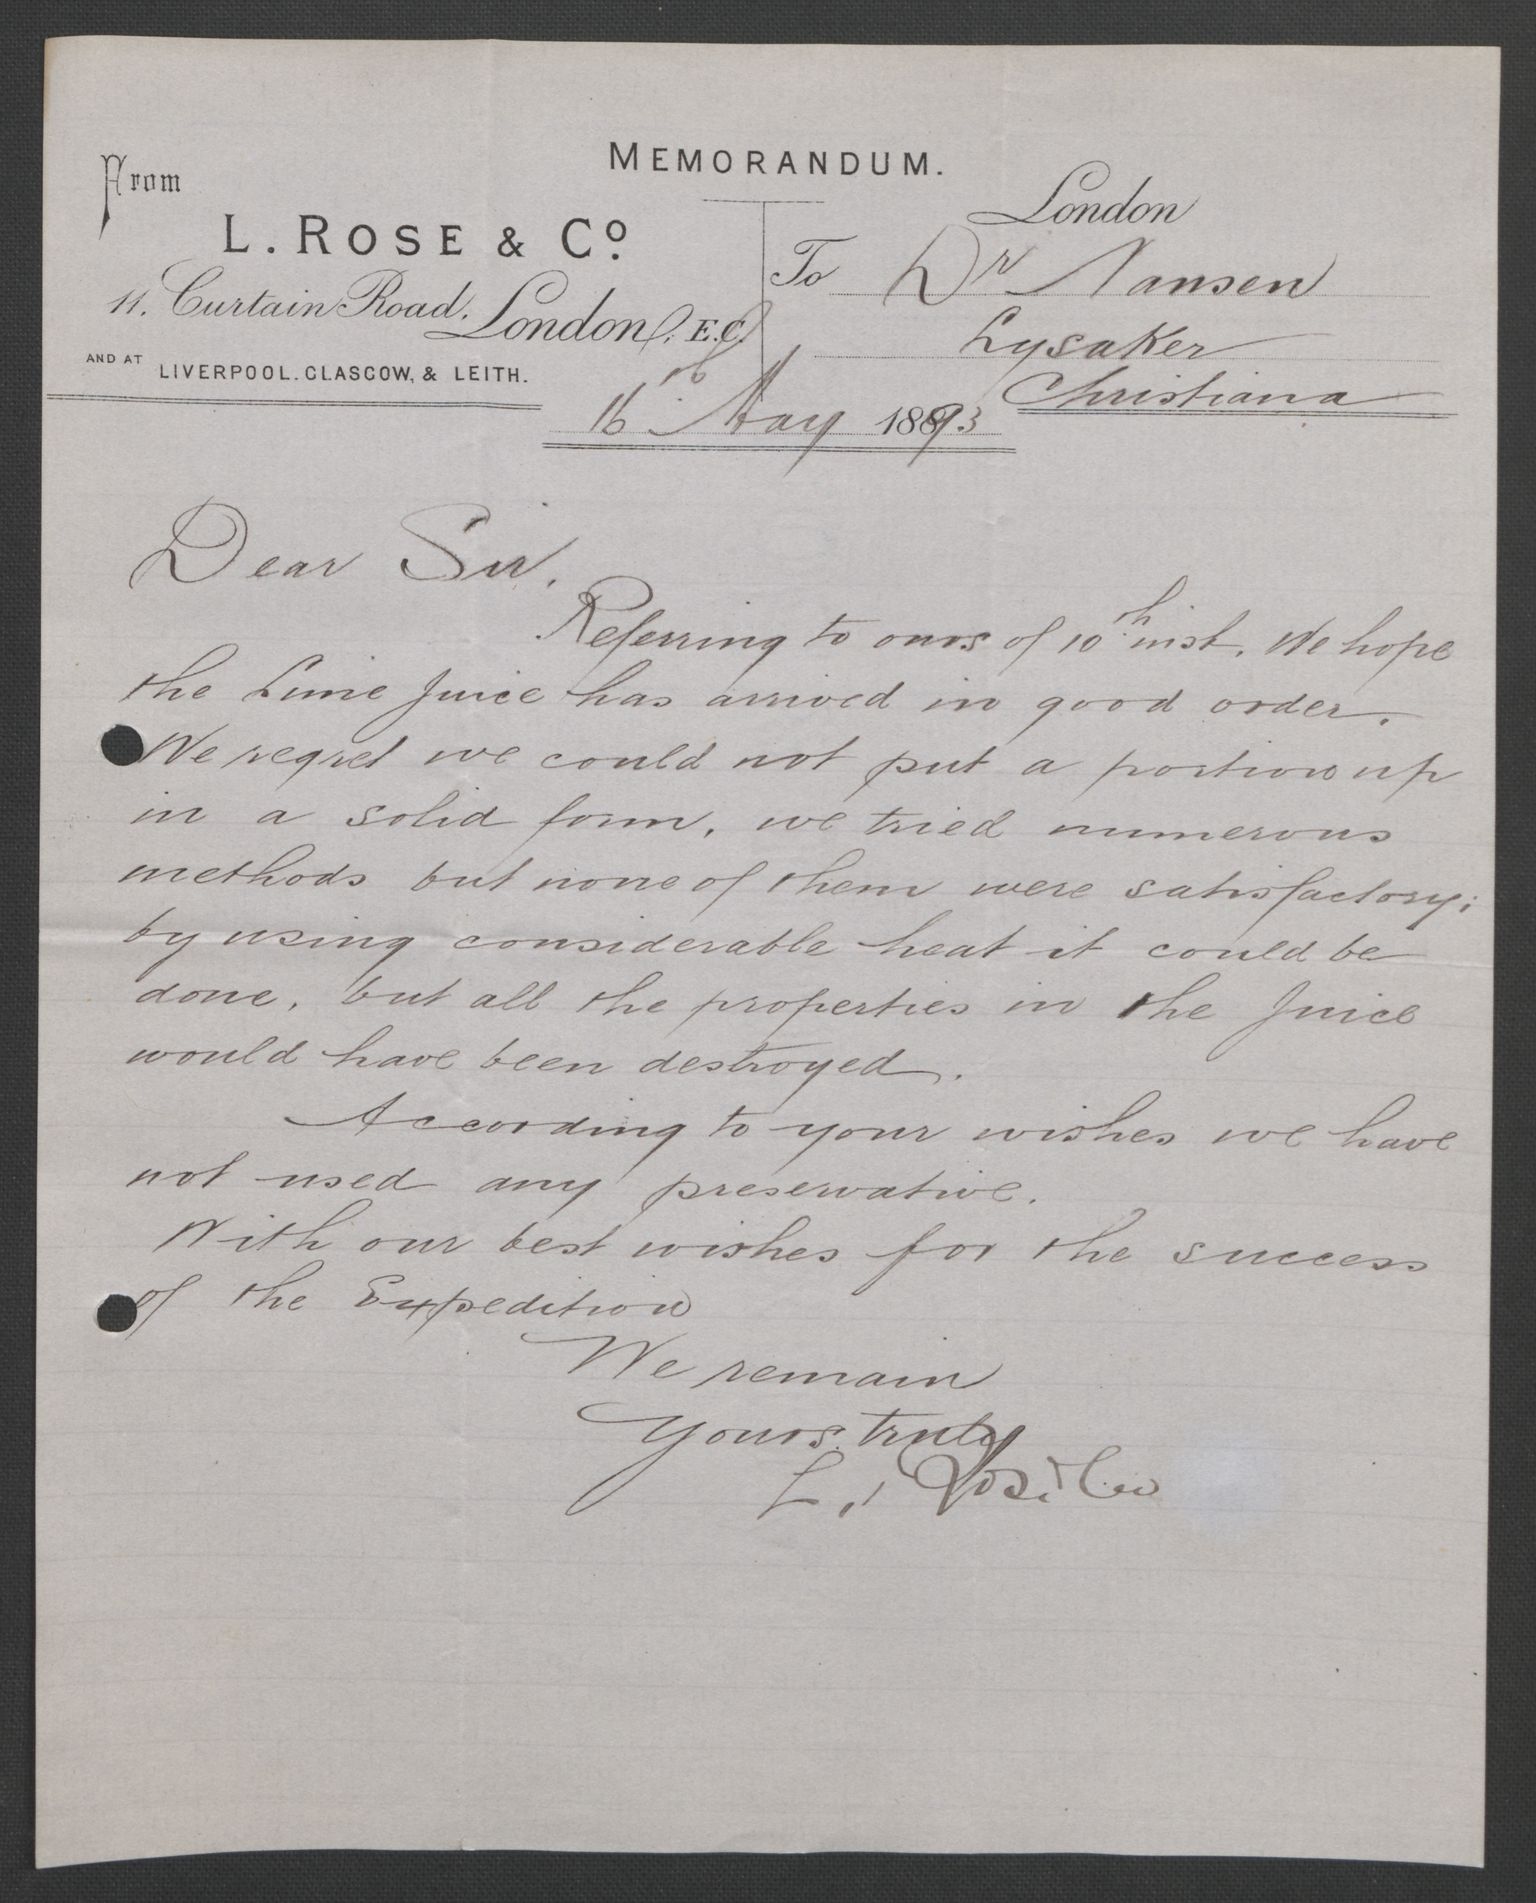 MEMORANDUM.
From
L. ROSE & Co.
11. Curtain Road, London, E.C.
AND AT LIVERPOOL. GLASGOW, & LEITH.
London
To Dr Nansen
Lysaker
Christiana
16th May 1893
Dear Sir,
Referring to ours of 10th inst. We hope
the Lime Juice has arrived in good order.
We regret we could not put a portion up
in a solid form, we tried numerous
methods but none of them were satisfactory;
by using considerable heat it could be
done, but all the properties in the Juice
would have been destroyed.
According to your wishes we have
not used any preservative.
With our best wishes for the success
of the Expedition
We remain
Yours truly
L. Rose & Co